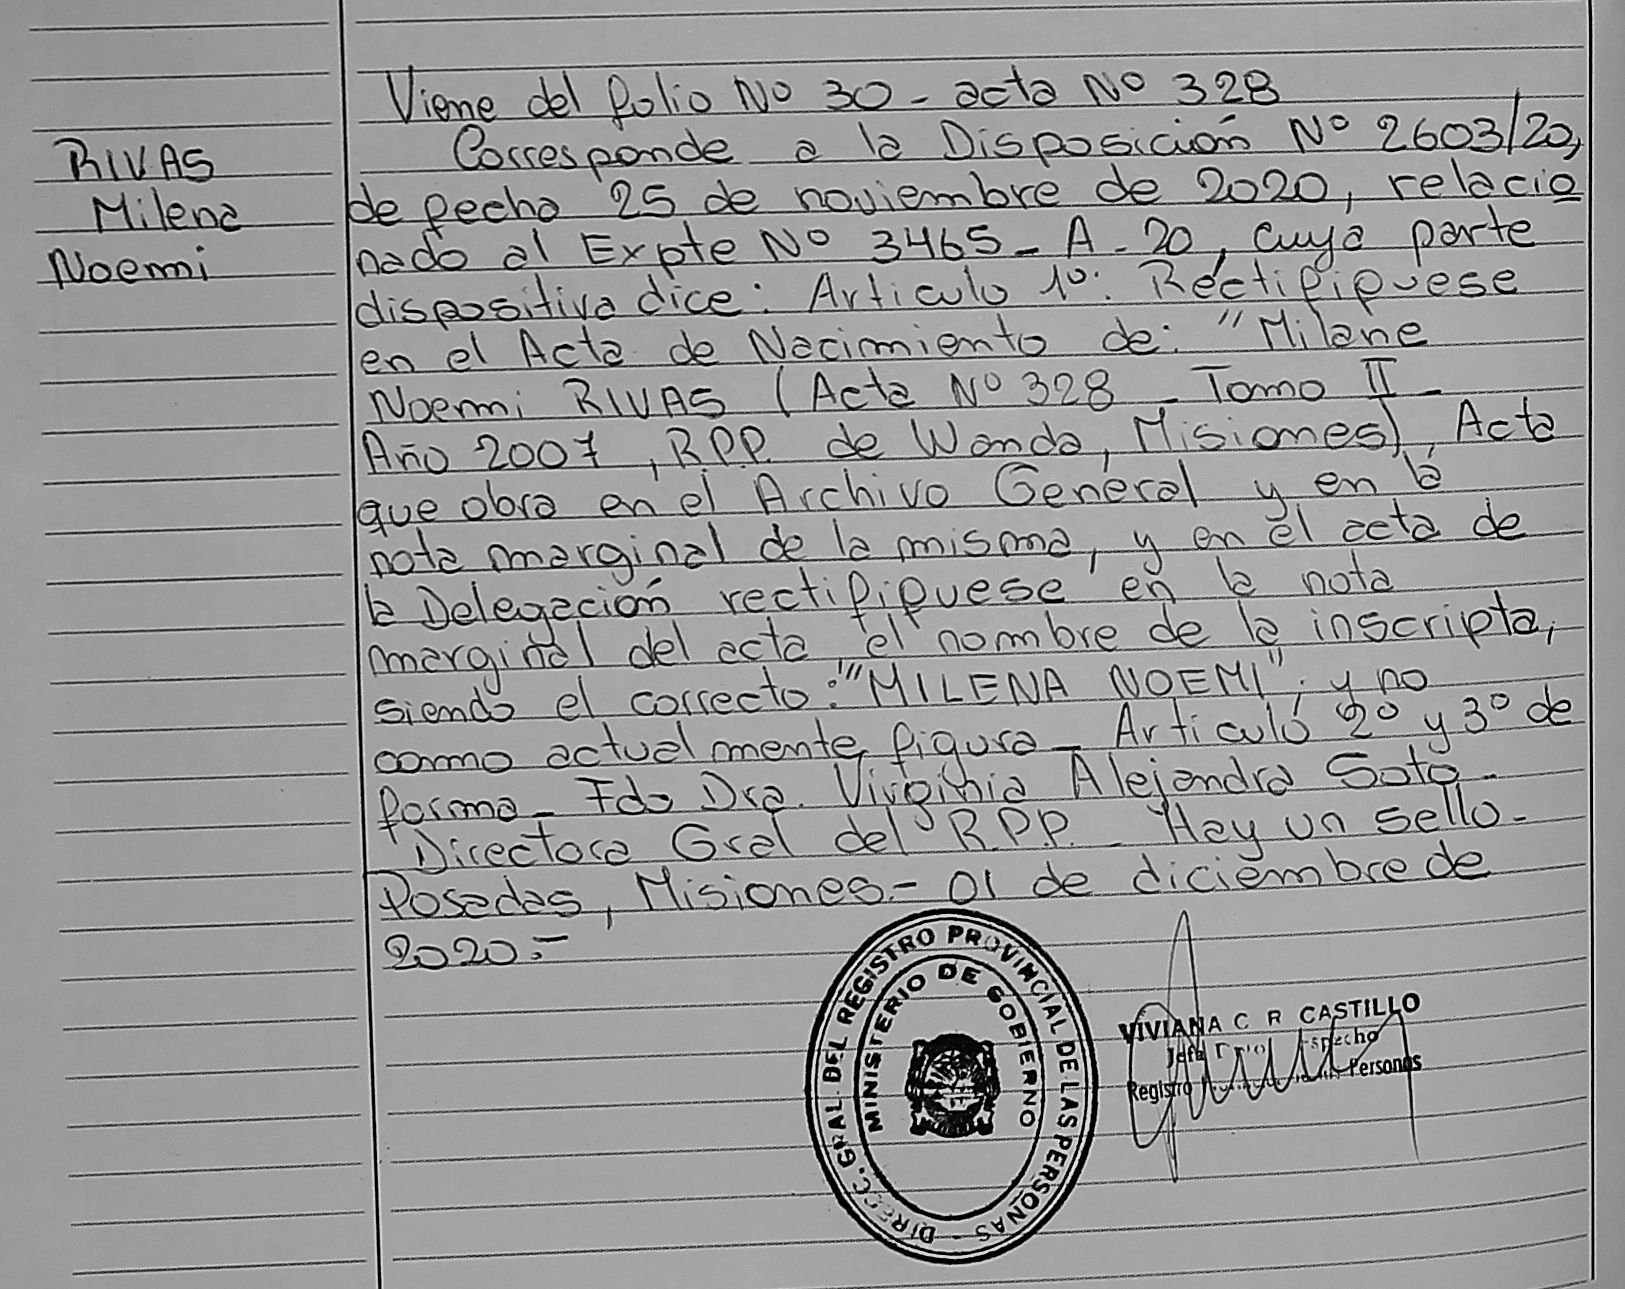 Viene del folio Nº 30 - acta Nº 328
Corresponde a la Disposición Nº 2603/20,
RIVAS
Milena
Noemi
de fecha 25 de noviembre de 2020, relacio
nado al Expte Nº 3465 - A - 20, cuya parte
dispositiva dice: Articulo 1º: Rectifiquese
en el Acta de Nacimiento de: "Milane
Noemi RIVAS (Acta Nº 328 - Tomo II -
Año 2007, R.P.P. de Wanda, Misiones), Acta
que obra en el Archivo General y en la
nota marginal de la misma, y en el acta de
la Delegación rectifiquese en la nota
marginal del acta, el nombre de la inscripta,
siendo el correcto: "MILENA NOEMI"; y no
como actualmente figura - Articulo 2º y 3º de
forma - Fdo Dra. Virginia Alejandra Soto -
Directora Gral del R.P.P. - Hay un sello -
Posadas, Misiones - 01 de diciembre de
2020 : -
DIRECC. GRAL. DEL REGISTRO PROVINCIAL DE LAS PERSONAS -
MINISTERIO DE GOBIERNO
VIVIANA C R CASTILLO
Jefa
Registro Personas